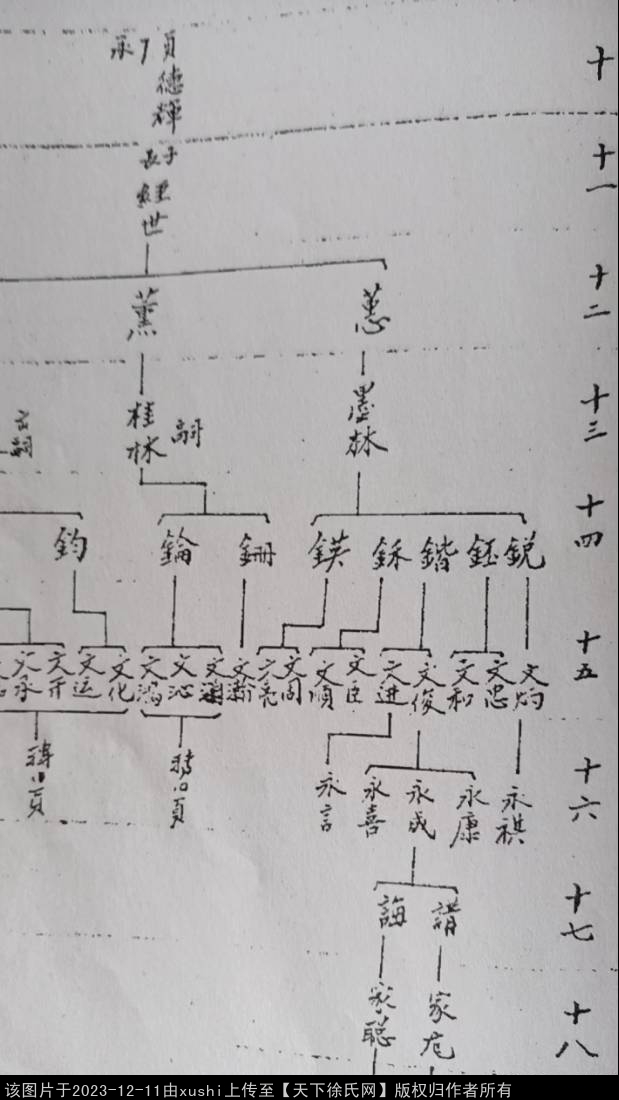 十
承7頁
德輝
十一
長子
經世
十二
蕙
薰
十三
墨林
桂林
嗣
十四
銳 鈺 鍇 鉌 鍈 鏥 錀 鈞
十五
文灼 文忠 文和 文俊 文进 文臣 文順 文周 文亮 文瀚 文瀾 文沁 文鴻 文化 文运 文开 文承
十六
永祺 永康 永成 永喜 永言
转 頁
转 頁
十七
譜 誨
十八
家 家聰
该图片于2023-12-11由xushi上传至【天下徐氏网】版权归作者所有